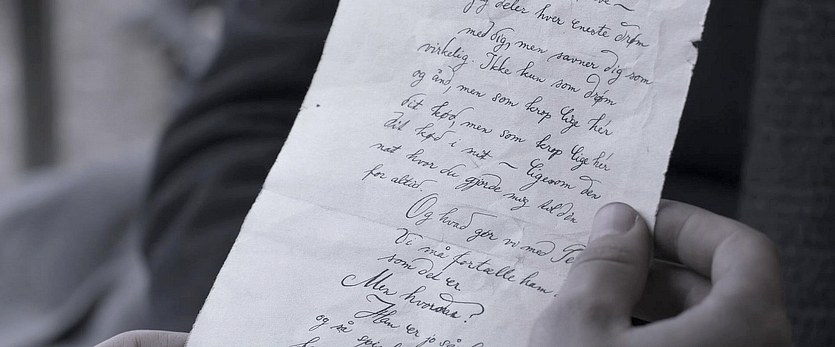 jeg deler hver eneste drøm
med dig, men savner dig som
virkelig. Ikke kun som drøm
og ånd, men som krop lige hér
dit kød, men som krop lige hér
dit kød i mit ~ ligesom den
nat hvor du gjorde mig til din
for altid.
Og hvad gør vi med Te
Vi må fortælle ham
som det er
Men hvordan?
Han er jo så
og så